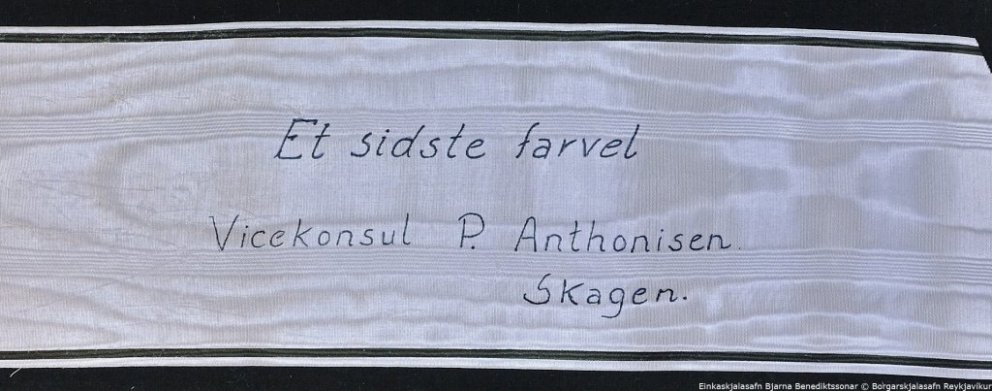 Et sidste farvel
Vicekonsul P. Anthonisen.
Skagen.
Einkaskjalasafn Bjarna Benediktssonar © Borgarskjalasafn Reykjavíkur